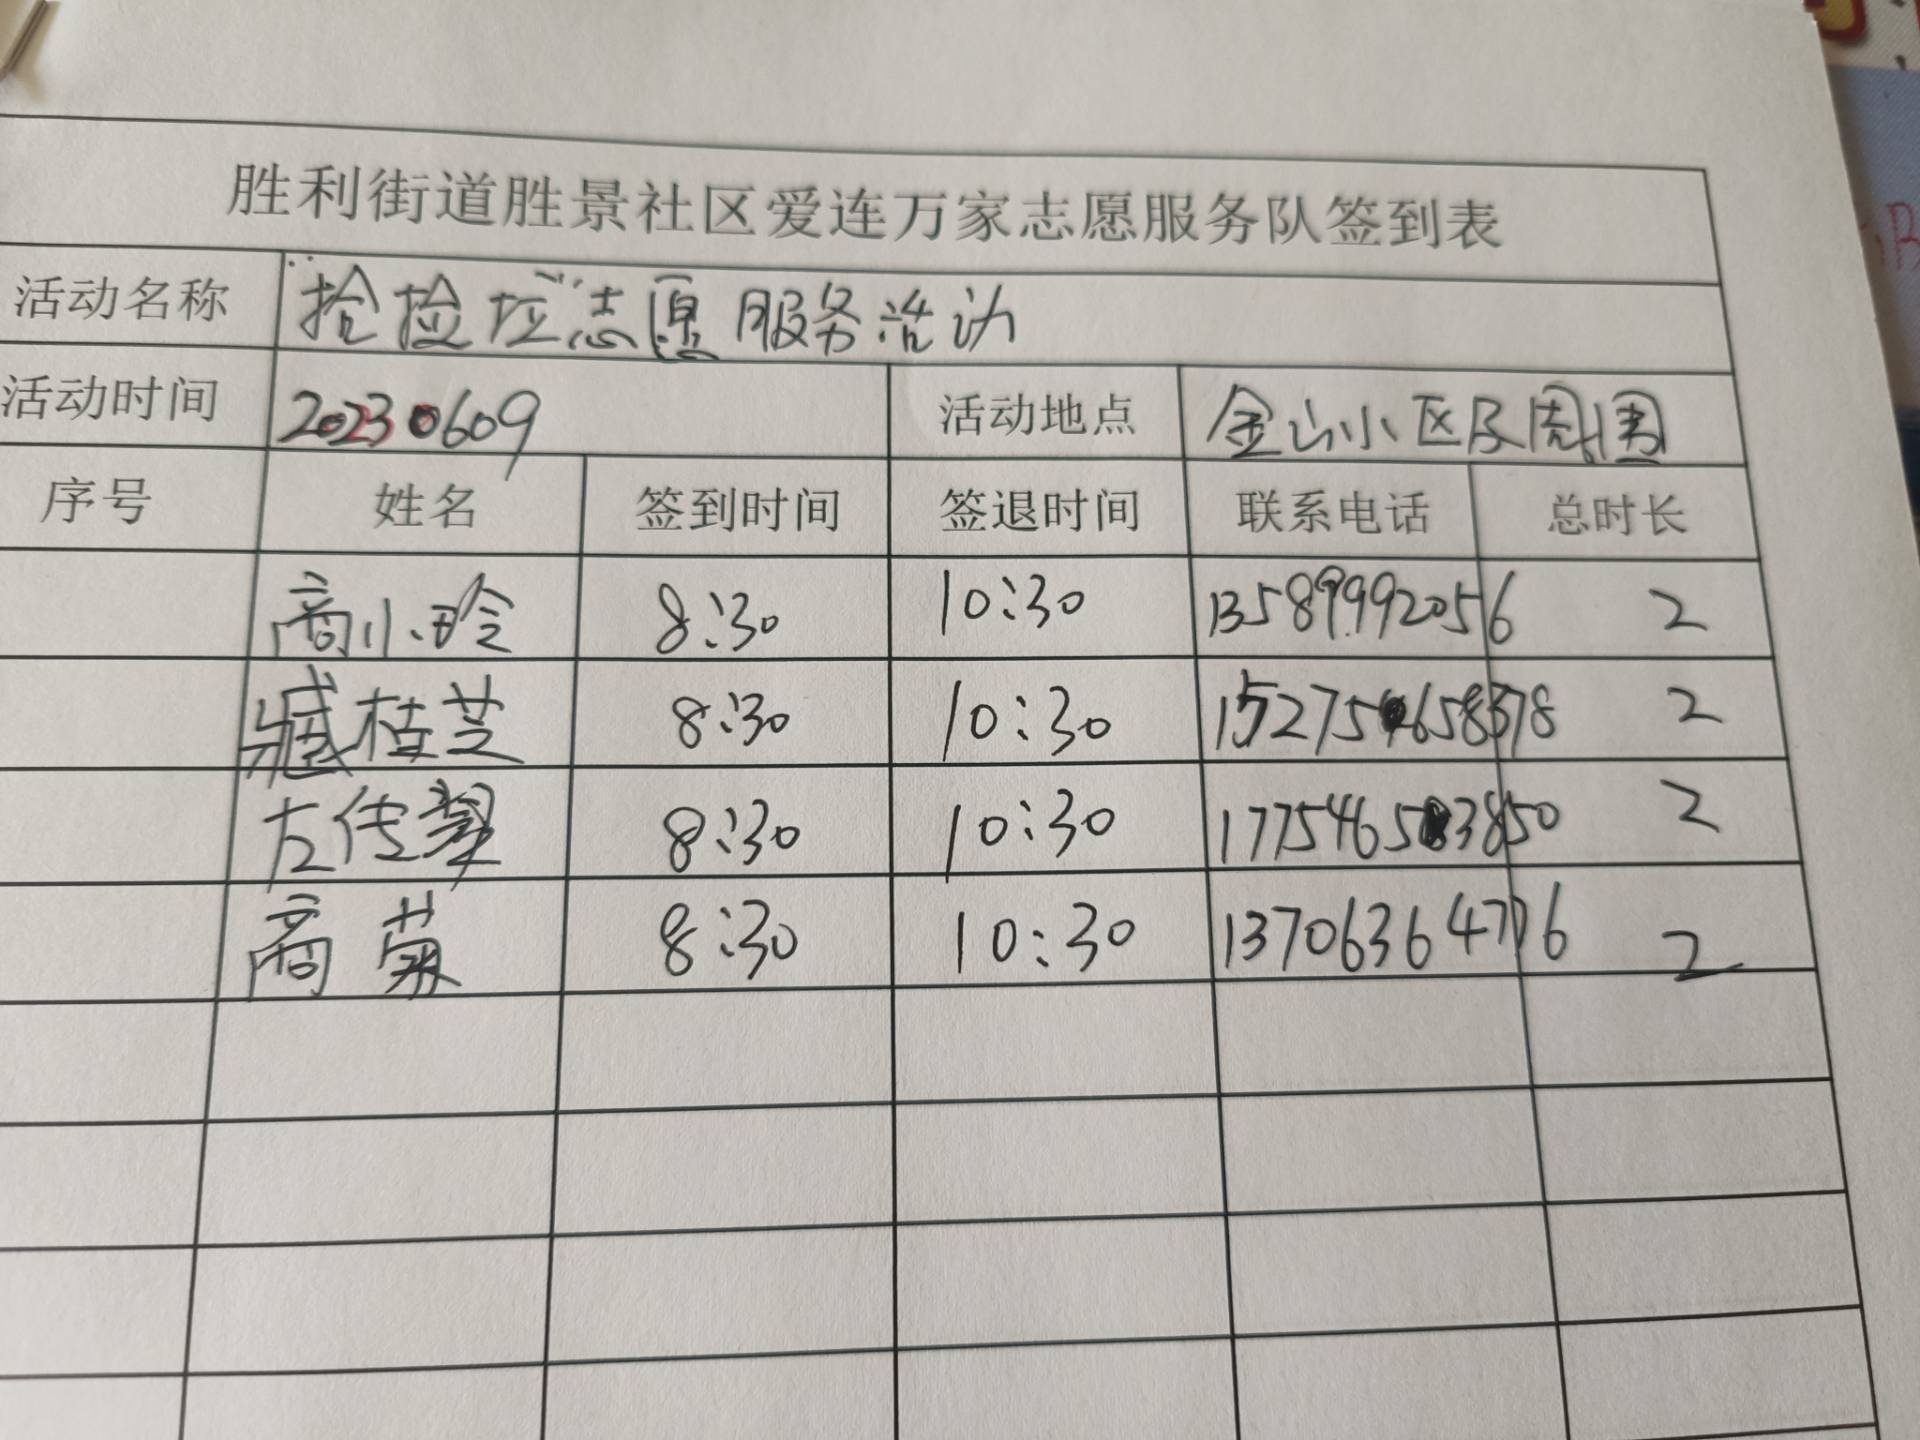 胜利街道胜景社区爱连万家志愿服务队签到表
活动名称 捡垃圾志愿服务活动
活动时间 20230609 活动地点 金山小区及周围
序号 姓名 签到时间 签退时间 联系电话 总时长
商小玲 8:30 10:30 13589992056 2
臧桂芝 8:30 10:30 15275658378 2
左传翠 8:30 10:30 17754653850 2
商菊 8:30 10:30 13706364776 2